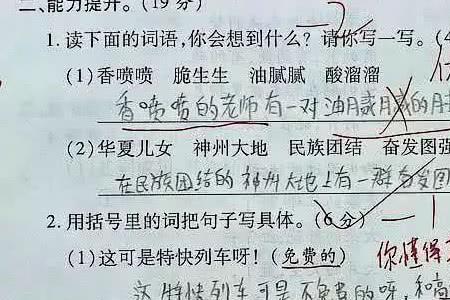 二、能力提升。(19分)
1.读下面的词语,你会想到什么?请你写一写。(4
(1)香喷喷 脆生生 油腻腻 酸溜溜
香喷喷的老师有一对油腻腻的
(2)华夏儿女 神州大地 民族团结 奋发图强
在民族团结的神州大地上有一群奋发图
2.用括号里的词把句子写具体。(6分) 一1
(1)这可是特快列车呀!(免费的) 你懂得
这特快列车可是不免费的呀,和高